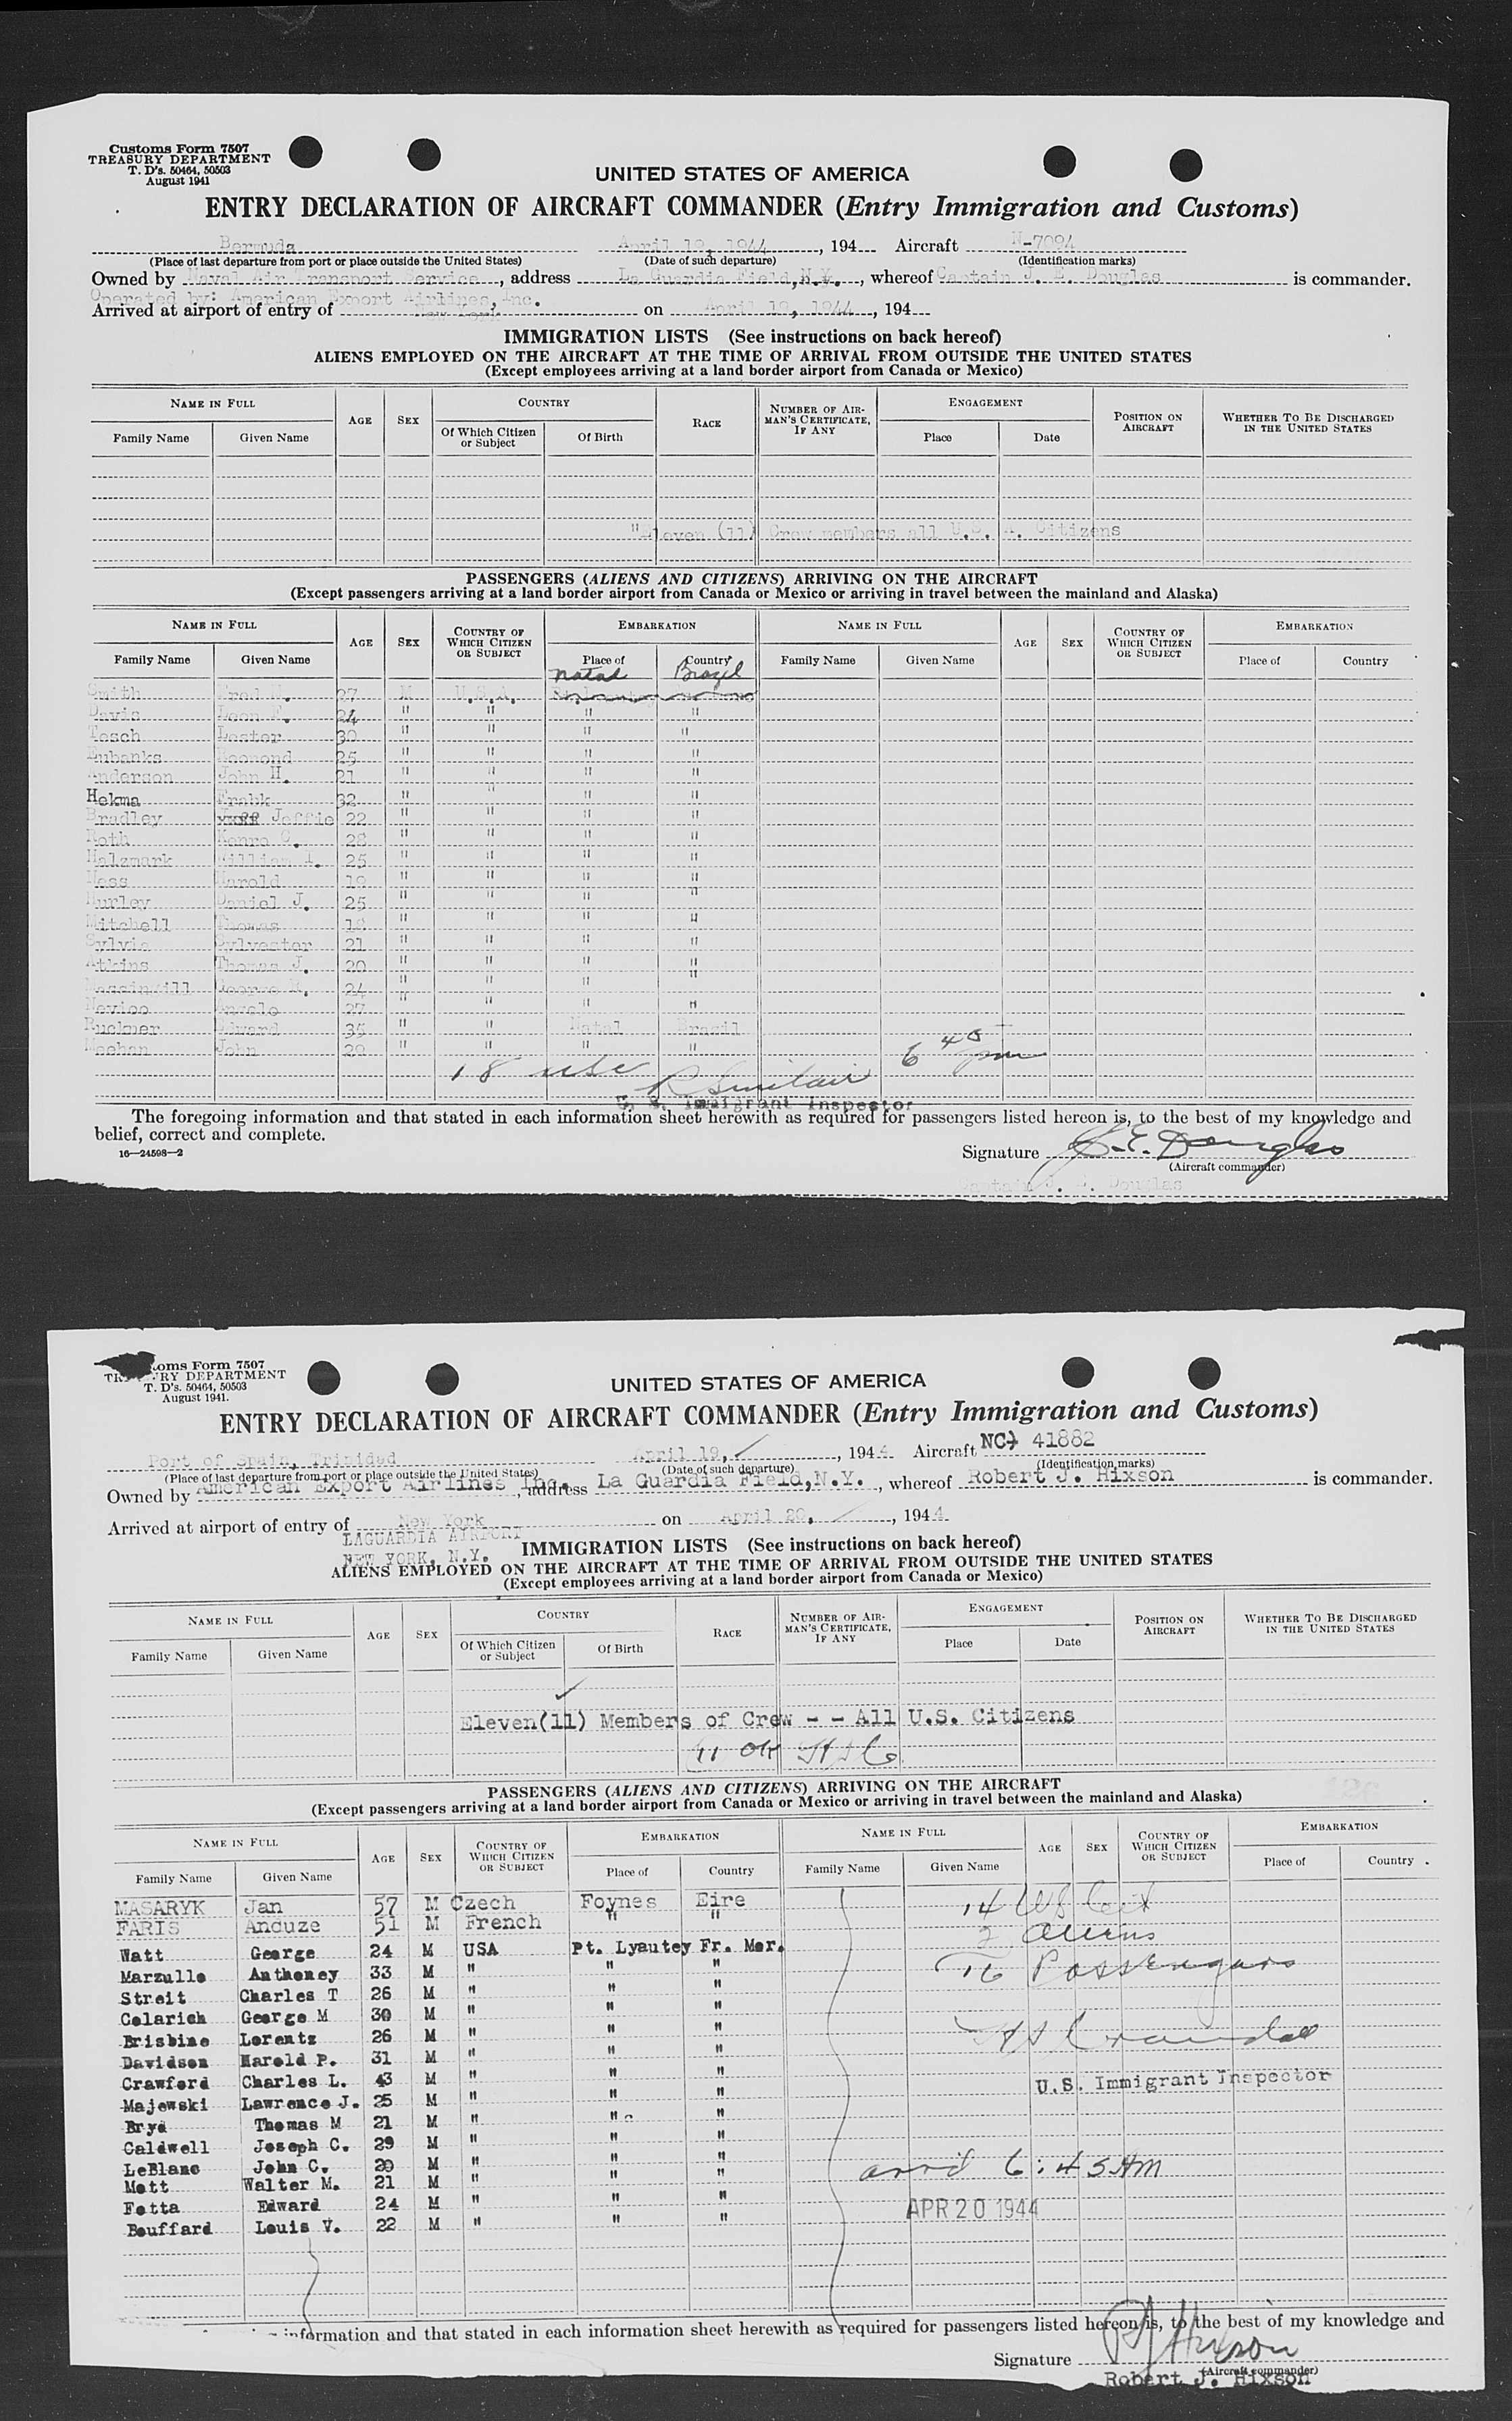 Customs Form 7507
TREASURY DEPARTMENT
T. D's. 50464, 50503
August 1941
UNITED STATES OF AMERICA
ENTRY DECLARATION OF AIRCRAFT COMMANDER (Entry Immigration and Customs)
Bermuda April 19, 1944, 194 Aircraft N-7094
(Place of last departure from port or place outside the United States) (Date of such departure) (Identification marks)
Owned by Naval Air Transport Service, address La Guardia Field, N.Y., whereof Captain J. E. Douglas is commander.
Operated by: American Export Airlines, Inc.
Arrived at airport of entry of New York on April 19, 1944, 194
IMMIGRATION LISTS (See instructions on back hereof)
ALIENS EMPLOYED ON THE AIRCRAFT AT THE TIME OF ARRIVAL FROM OUTSIDE THE UNITED STATES
(Except employees arriving at a land border airport from Canada or Mexico)
NAME IN FULL AGE SEX COUNTRY RACE NUMBER OF AIRMAN'S CERTIFICATE, IF ANY ENGAGEMENT POSITION ON AIRCRAFT WHETHER TO BE DISCHARGED IN THE UNITED STATES
Family Name Given Name Of Which Citizen or Subject Of Birth Place Date
"Eleven (11) Crew members all U.S. A. Citizens
PASSENGERS (ALIENS AND CITIZENS) ARRIVING ON THE AIRCRAFT
(Except passengers arriving at a land border airport from Canada or Mexico or arriving in travel between the mainland and Alaska)
NAME IN FULL AGE SEX COUNTRY OF WHICH CITIZEN OR SUBJECT EMBARKATION NAME IN FULL AGE SEX COUNTRY OF WHICH CITIZEN OR SUBJECT EMBARKATION
Family Name Given Name Place of Country Family Name Given Name Place of Country
Natal Brazil
Smith Fred 27 M U.S.A.
Davis Deon 24 " " " "
Tesch Lester 30 " " " "
Eubanks 25 " " " "
Anderson John H. 21 " " " "
Hekma Frabk 32 " " " "
Bradley Jeffie 22 " " " "
Roth 28 " " " "
Halzmark William 25 " " " "
Harold 19 " " " "
Hurley Daniel J. 25 " " " "
Mitchell Thomas 18 " " " "
Sylvia Sylvester 21 " " " "
Atkins Thomas J. 20 " " " "
Massingill George 24 " " " "
Angelo 27 " " " "
Ruckner Edward 35 " " Natal Brazil
Meehan John 29 " " " "
18 usc R Sinclair 6 45 pm
U. S. Immigrant Inspector
The foregoing information and that stated in each information sheet herewith as required for passengers listed hereon is, to the best of my knowledge and
belief, correct and complete.
16—24598—2
Signature J. E. Douglas
(Aircraft commander)
Captain J. E. Douglas
oms Form 7507
RY DEPARTMENT
T. D's. 50464, 50503
August 1941.
UNITED STATES OF AMERICA
ENTRY DECLARATION OF AIRCRAFT COMMANDER (Entry Immigration and Customs)
Port of Spain, Trinidad April 19, 1944 Aircraft NC 41882
(Place of last departure from port or place outside the United States) (Date of such departure) (Identification marks)
Owned by American Export Airlines Inc., address La Guardia Field, N.Y., whereof Robert J. Hixson is commander.
Arrived at airport of entry of New York on April 20, 1944
LAGUARDIA AIRPORT
NEW YORK, N.Y.
IMMIGRATION LISTS (See instructions on back hereof)
ALIENS EMPLOYED ON THE AIRCRAFT AT THE TIME OF ARRIVAL FROM OUTSIDE THE UNITED STATES
(Except employees arriving at a land border airport from Canada or Mexico)
NAME IN FULL AGE SEX COUNTRY RACE NUMBER OF AIRMAN'S CERTIFICATE, IF ANY ENGAGEMENT POSITION ON AIRCRAFT WHETHER TO BE DISCHARGED IN THE UNITED STATES
Family Name Given Name Of Which Citizen or Subject Of Birth Place Date
Eleven(11) Members of Crew - - All U.S. Citizens
11 OK
PASSENGERS (ALIENS AND CITIZENS) ARRIVING ON THE AIRCRAFT
(Except passengers arriving at a land border airport from Canada or Mexico or arriving in travel between the mainland and Alaska)
NAME IN FULL AGE SEX COUNTRY OF WHICH CITIZEN OR SUBJECT EMBARKATION NAME IN FULL AGE SEX COUNTRY OF WHICH CITIZEN OR SUBJECT EMBARKATION
Family Name Given Name Place of Country Family Name Given Name Place of Country
MASARYK Jan 57 M Czech Foynes Eire 14 US Cit
FARIS Anduze 51 M French " " 2 Aliens
Watt George 24 M USA Pt. Lyautey Fr. Mor.
Marzullo Anthoney 33 M " " " 16 Passengers
Streit Charles T 26 M " " "
Colarich George M 30 M " " "
Brisbine Lorentz 26 M " " "
Davidson Harold P. 31 M " " "
Crawford Charles L. 43 M " " " U.S. Immigrant Inspector
Majewski Lawrence J. 25 M " " "
Bryd Thomas M 21 M " " "
Caldwell Joseph C. 29 M " " "
LeBlanc John C. 20 M " " " arrd 6:45 AM
Mott Walter M. 21 M " " "
Fotta Edward 24 M " " " APR 20 1944
Bouffard Louis V. 22 M " " "
information and that stated in each information sheet herewith as required for passengers listed hereon is, to the best of my knowledge and
Signature R J Hixson
(Aircraft commander)
Robert J. Hixson